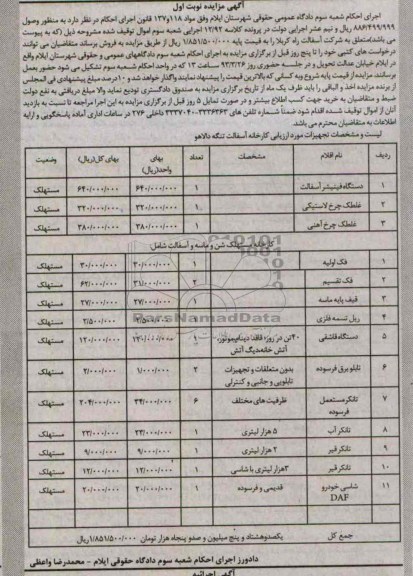 آگهی مزایده نوبت اول
اجرای احکام شعبه سوم دادگاه عمومی حقوقی شهرستان ایلام وفق مواد ۱۱۸و۱۳۷ قانون اجرای احکام در نظر دارد به منظور وصول
۸۸۶/۴۹۹/۹۹۹ ریال و نیم عشر اجرایی دولت در پرونده کلاسه ۱۲/۹۲ اجرایی شعبه سوم اموال توقیف شده مشروحه ذیل (که به پیوست
می باشد)متعلق به شرکت آسفالت راه کربلا را به قیمت پایه ۱/۸۵۱/۵۰۰/۰۰۰ ریال از طریق مزایده به فروش برساند متقاضیان می توانند
درخواست های کتبی خود را تا پنج روز قبل از برگزاری مزایده به اجرای احکام شعبه سوم دادگاههای عمومی و حقوقی شهرستان ایلام واقع
در ایلام خیابان عدالت تحویل و در جلسه حضوری روز ۹۳/۳/۲۶ ساعت ۱۳ که در واحد احکام شعبه سوم تشکیل می شود حضور بعمل
برسانند. مزایده از قیمت پایه شروع وبه کسانی که بالاترین قیمت را پیشنهاد نمایند واگذار خواهد شد و ۱۰درصد مبلغ پیشنهادی فی المجلس
از برنده مزایده اخذ و الباقی را باید ظرف یک ماه از تاریخ برگزاری مزایده به صندوق دادگستری تودیع نماید والا مبلغ دریافتی به نفع دولت
ضبط و متقاضیان به خرید جهت کسب اطلاع بیشتر و در صورت تمایل ۵ روز قبل از برگزاری مزایده به این اجرا مراجعه تا نسبت به بازدید
آنان از اموال توقیف شده اقدام شود ضمناً شماره تلفن های ۳۳۳۶۳۶۳-۳۳۳۷۰۴۰ داخلی ۲۷۶ در ساعات اداری آماده پاسخگویی و ارایه
اطلاعات به متقاضیان محترم می باشد.
لیست و مشخصات تجهیزات مورد ارزیابی کارخانه آسفالت تنگه دالاهو
ردیف نام اقلام مشخصات تعداد بهای واحد(ریال) بهای کل(ریال) وضعیت
۱ دستگاه فینیشر آسفالت ۱ ۶۴۰/۰۰۰/۰۰۰ ۶۴۰/۰۰۰/۰۰۰ مستهلک
۲ غلطک چرخ لاستیکی ۱ ۳۲۰/۰۰۰/۰۰۰ ۳۲۰/۰۰۰/۰۰۰ مستهلک
۳ غلطک چرخ آهنی ۱ ۳۸۰/۰۰۰/۰۰۰ ۳۸۰/۰۰۰/۰۰۰ مستهلک
کارخانه مستهلک شن و ماسه و آسفالت شامل:
۱ فک اولیه ۱ ۳۰/۰۰۰/۰۰۰ ۳۰/۰۰۰/۰۰۰ مستهلک
۲ فک تقسیم ۲ ۳۱/۰۰۰/۰۰۰ ۶۲/۰۰۰/۰۰۰ مستهلک
۳ قیف پایه ماسه ۱ ۲۷/۰۰۰/۰۰۰ ۲۷/۰۰۰/۰۰۰ مستهلک
۴ ریل تسمه فلزی ۱ ۲/۵۰۰/۰۰۰ ۲/۵۰۰/۰۰۰ مستهلک
۵ دستگاه قاشقی ۴۰تن در روزه فاقد دینام،موتور، آتش خانه،دیگ آتش ۱ ۱۲۰/۰۰۰/۰۰۰ ۱۲۰/۰۰۰/۰۰۰ مستهلک
۶ تابلو برق فرسوده بدون متعلقات و تجهیزات تابلویی و جانبی و کنترلی ۲ ۱/۰۰۰/۰۰۰ ۲/۰۰۰/۰۰۰ مستهلک
۷ تانکر مستعمل فرسوده ظرفیت های مختلف ۶ ۳۴/۰۰۰/۰۰۰ ۲۰۴/۰۰۰/۰۰۰ مستهلک
۸ تانکر آب ۵ هزار لیتری ۱ ۲۳/۰۰۰/۰۰۰ ۲۳/۰۰۰/۰۰۰ مستهلک
۹ تانکر قیر ۲ هزار لیتری ۱ ۹/۰۰۰/۰۰۰ ۹/۰۰۰/۰۰۰ مستهلک
۱۰ تانکر قیر ۳هزار لیتری با شاسی ۱ ۱۲/۰۰۰/۰۰۰ ۱۲/۰۰۰/۰۰۰ مستهلک
۱۱ شاسی خودرو DAF قدیمی و فرسوده ۱ ۲۰/۰۰۰/۰۰۰ ۲۰/۰۰۰/۰۰۰ مستهلک
جمع کل یکصدوهشتاد و پنج میلیون و صدو پنجاه هزار تومان ۱/۸۵۱/۵۰۰/۰۰۰ریال
دادورز اجرای احکام شعبه سوم دادگاه حقوقی ایلام - محمدرضا واعظی
آگهی اجرائیه
ParsNamadData